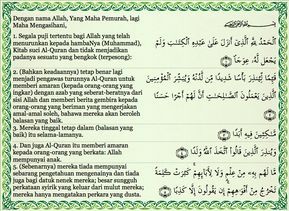 Dengan nama Allah, Yang Maha Pemurah, lagi
Maha Mengasihani,
1. Segala puji tertentu bagi Allah yang telah
menurunkan kepada hambaNya (Muhammad),
Kitab suci Al-Quran dan tidak menjadikan
padanya sesuatu yang bengkok (terpesong):
2. (Bahkan keadaannya) tetap benar lagi
menjadi pengawas turunnya Al-Quran untuk
memberi amaran (kepada orang-orang yang
ingkar) dengan azab yang seberat-beratnya dari
sisi Allah dan memberi berita gembira kepada
orang-orang yang beriman yang mengerjakan
amal-amal soleh, bahawa mereka akan beroleh
balasan yang baik.
3. Mereka tinggal tetap dalam (balasan yang
baik) itu selama-lamanya.
4. Dan juga Al-Quran itu memberi amaran
kepada orang-orang yang berkata: Allah
mempunyai anak.
5. (Sebenarnya) mereka tiada mempunyai
sebarang pengetahuan mengenainya dan tiada
juga bagi datuk nenek mereka; besar sungguh
perkataan syirik yang keluar dari mulut mereka;
mereka hanya mengatakan perkara yang dusta.
الْحَمْدُ لِلَّهِ الَّذِي أَنزَلَ عَلَىٰ عَبْدِهِ الْكِتَابَ وَلَمْ
يَجْعَل لَّهُ عِوَجًا
قَيِّمًا لِّيُنذِرَ بَأْسًا شَدِيدًا مِّن لَّدُنْهُ وَيُبَشِّرَ الْمُؤْمِنِينَ
الَّذِينَ يَعْمَلُونَ الصَّالِحَاتِ أَنَّ لَهُمْ أَجْرًا حَسَنًا
مَّاكِثِينَ فِيهِ أَبَدًا
وَيُنذِرَ الَّذِينَ قَالُوا اتَّخَذَ اللَّهُ وَلَدًا
مَّا لَهُم بِهِ مِنْ عِلْمٍ وَلَا لِآبَائِهِمْ كَبُرَتْ كَلِمَةً
تَخْرُجُ مِنْ أَفْوَاهِهِمْ إِن يَقُولُونَ إِلَّا كَذِبًا